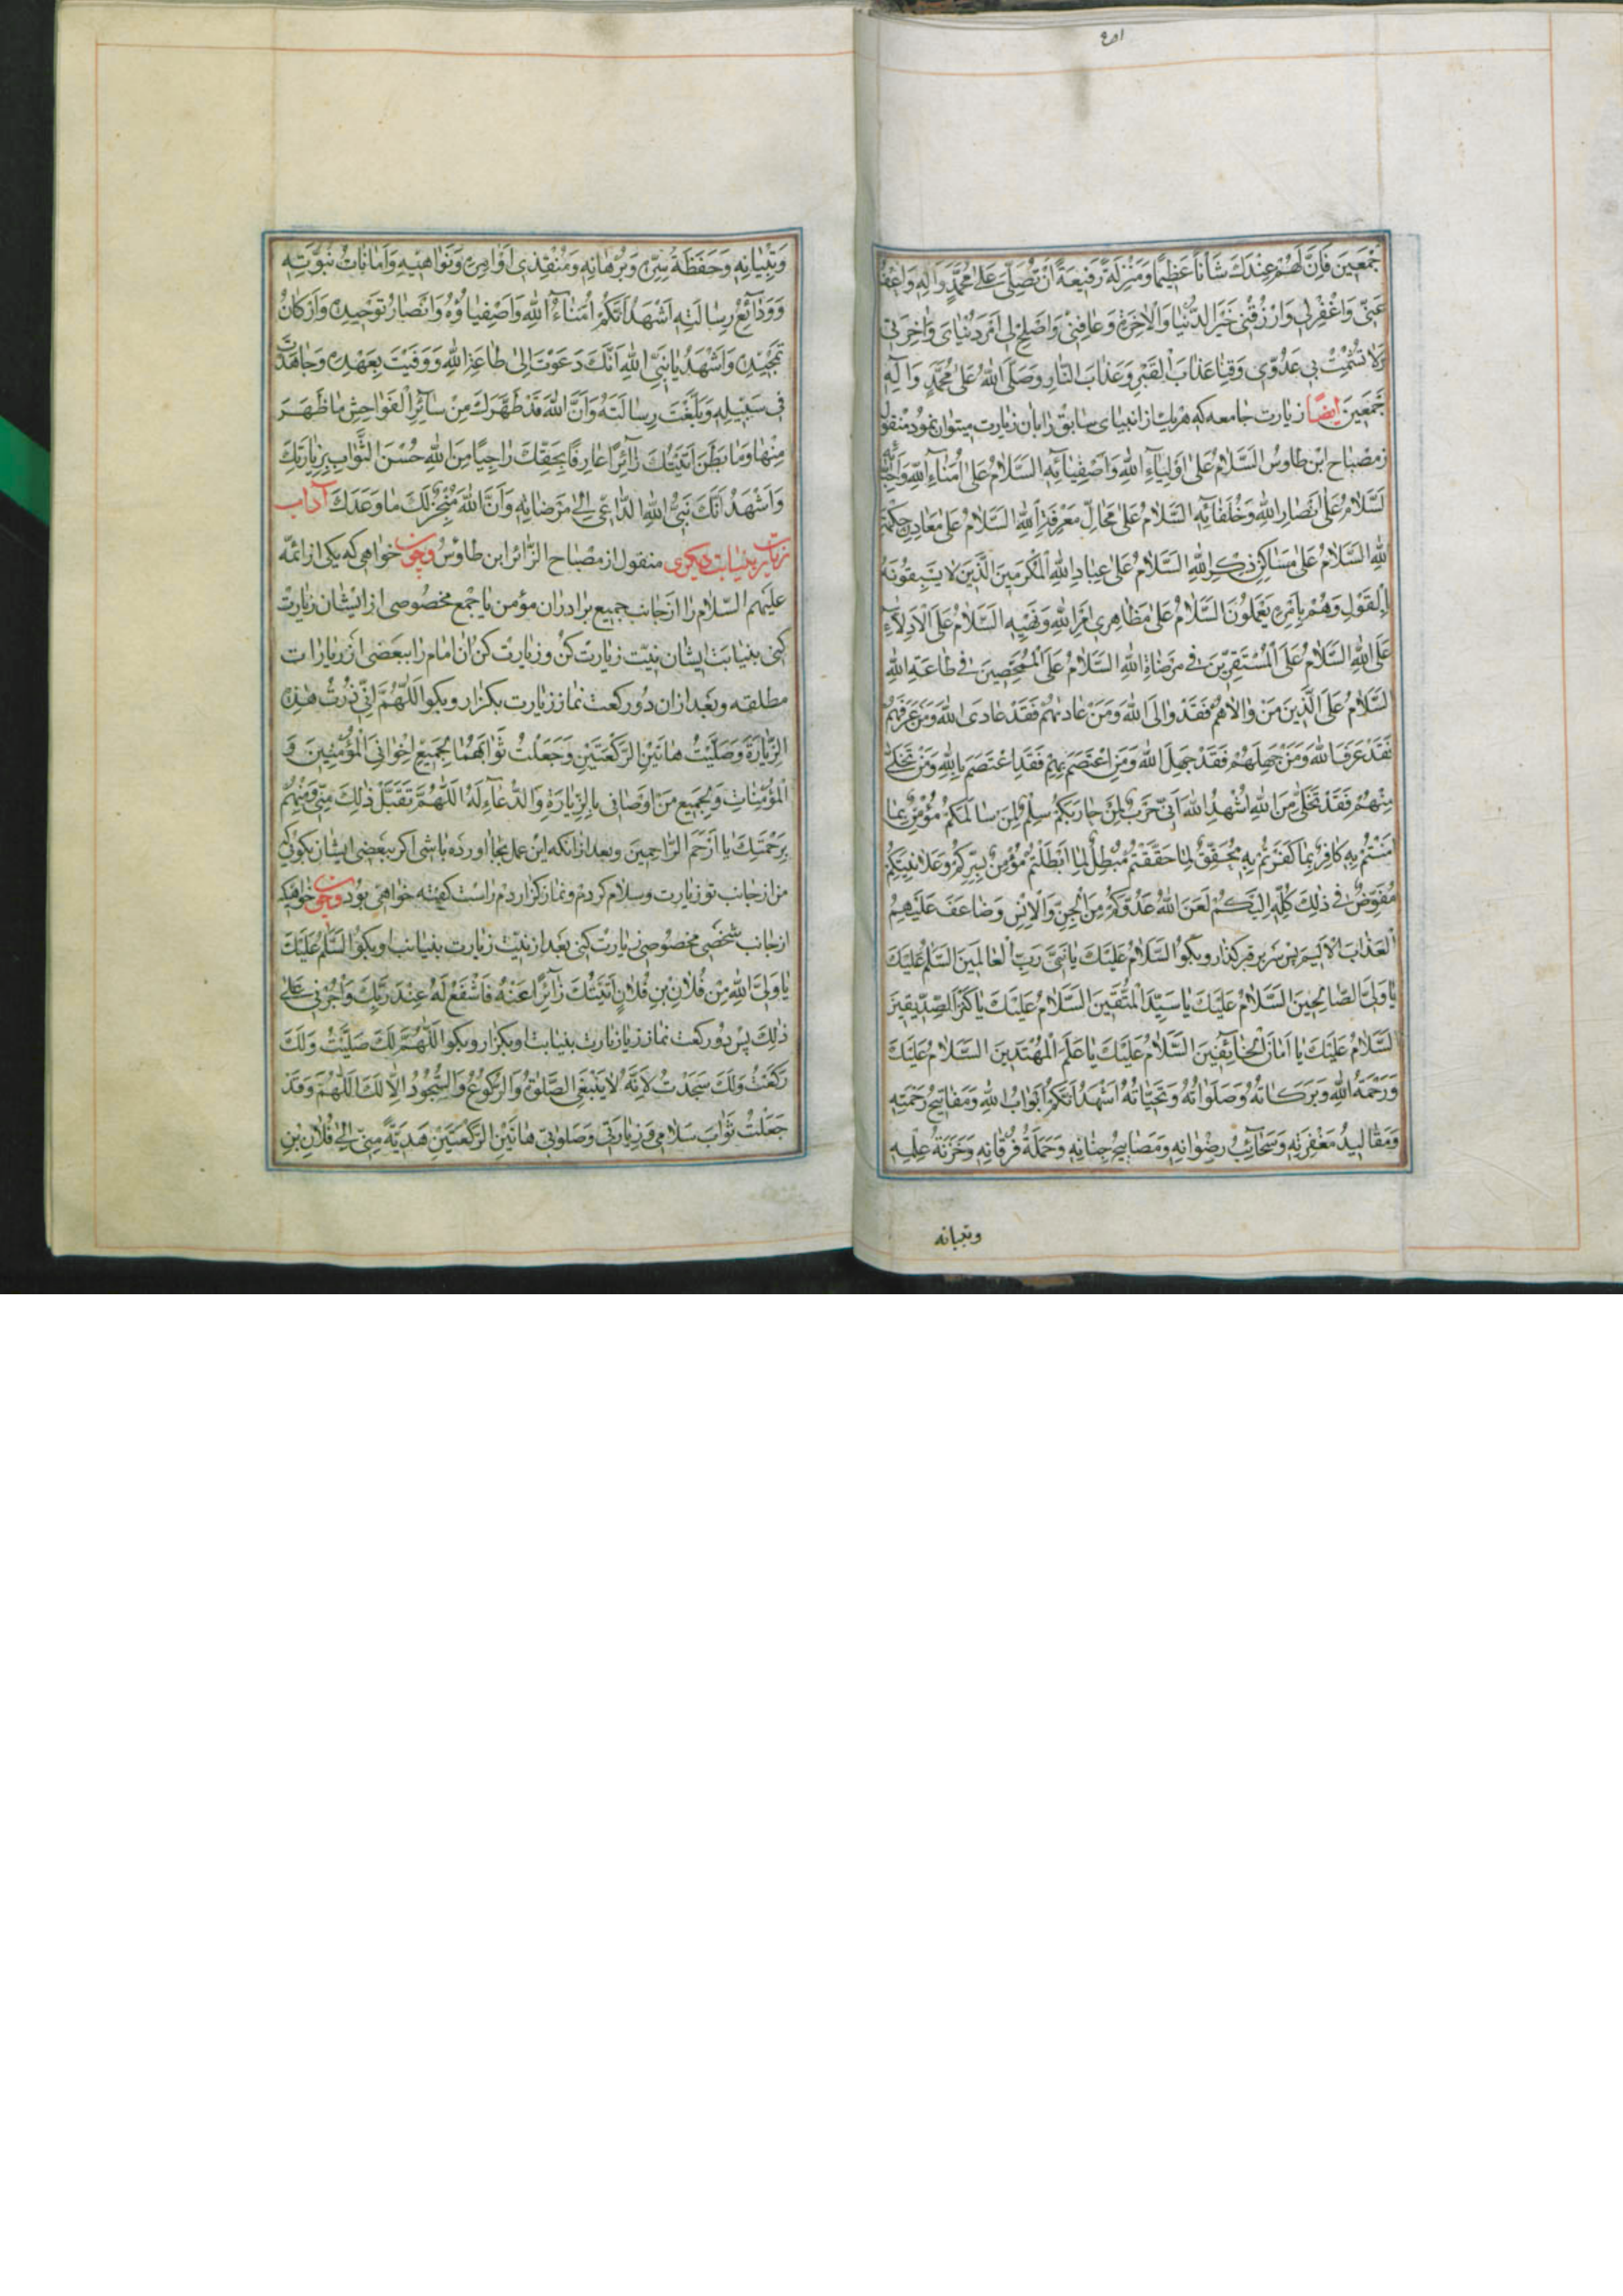 جْمَعِينَ فَاِنَّ لَهُمْ عِنْدَكَ شَأْنًا عَظِيمًا وَمَنْزِلَةً رَفِيعَةً اَنْ تُصَلِّيَ عَلىٰ مُحَمَّدٍ وَآلِهِ
عَنّي وَاغْفِرْ لي وَارْزُقْني خَيْرَ الدُّنْيا وَالْاٰخِرَةِ وَعافِني وَاَصْلِحْ لي اَمْرَ دُنْيايَ وَاٰخِرَتي
وَلا تُشْمِتْ بي عَدُوّي وَقِنا عَذابَ الْقَبْرِ وَعَذابَ النّارِ وَصَلَّى اللهُ عَلىٰ مُحَمَّدٍ وَآلِهِ
جْمَعينَ ايضًا زيارت جامعه كه هريك از انبياى سابق را بان زيارت ميتوان نمود منقول
ز مصباح ابن طاوس اَلسَّلامُ عَلىٰ اَوْلِياءِ اللهِ وَاَصْفِيائِهِ اَلسَّلامُ عَلىٰ اُمَناءِ اللهِ وَاَحِبّائِهِ
لسَّلامُ عَلىٰ اَنْصارِ اللهِ وَخُلَفائِهِ اَلسَّلامُ عَلىٰ مَحالِّ مَعْرِفَةِ اللهِ اَلسَّلامُ عَلىٰ مَعادِنِ حِكْمَةِ
للهِ اَلسَّلامُ عَلىٰ مَساكِنِ ذِكْرِ اللهِ اَلسَّلامُ عَلىٰ عِبادِ اللهِ الْمُكْرَمينَ الَّذينَ لا يَسْبِقُونَهُ
بِالْقَوْلِ وَهُمْ بِاَمْرِهِ يَعْمَلُونَ اَلسَّلامُ عَلىٰ مَظاهِري اَمْرِ اللهِ وَنَهْيِهِ اَلسَّلامُ عَلَى الْاَدِلّاءِ
عَلَى اللهِ اَلسَّلامُ عَلَى الْمُسْتَقِرّينَ في مَرْضاةِ اللهِ اَلسَّلامُ عَلَى الْمُمَحَّصينَ في طاعَةِ اللهِ
لسَّلامُ عَلَى الَّذينَ مَنْ والاهُمْ فَقَدْ والَى اللهَ وَمَنْ عاداهُمْ فَقَدْ عادَى اللهَ وَمَنْ عَرَفَهُمْ
فَقَدْ عَرَفَ اللهَ وَمَنْ جَهِلَهُمْ فَقَدْ جَهِلَ اللهَ وَمَنِ اعْتَصَمَ بِهِمْ فَقَدِ اعْتَصَمَ بِاللهِ وَمَنْ تَخَلّىٰ
مِنْهُمْ فَقَدْ تَخَلّىٰ مِنَ اللهِ اُشْهِدُ اللهَ اَنّي حَرْبٌ لِمَنْ حارَبَكُمْ سِلْمٌ لِمَنْ سالَمَكُمْ مُؤْمِنٌ بِما
اٰمَنْتُمْ بِهِ كافِرٌ بِما كَفَرْتُمْ بِهِ مُحَقِّقٌ لِما حَقَّقْتُمْ مُبْطِلٌ لِما اَبْطَلْتُمْ مُؤْمِنٌ بِسِرِّكُمْ وَعَلانِيَتِكُمْ
مُفَوِّضٌ في ذٰلِكَ كُلِّهِ اِلَيْكُمْ لَعَنَ اللهُ عَدُوَّكُمْ مِنَ الْجِنِّ وَالْاِنْسِ وَضاعَفَ عَلَيْهِمُ
الْعَذابَ الْاَليمَ پس نزد قبر گذار و بگو اَلسَّلامُ عَلَيْكَ يا نَبِيَّ رَبِّ الْعالَمينَ اَلسَّلامُ عَلَيْكَ
يا وَلِيَّ الصّالِحينَ اَلسَّلامُ عَلَيْكَ يا سَيِّدَ الْمُتَّقينَ اَلسَّلامُ عَلَيْكَ يا كَنْزَ الصِّدّيقينَ
لسَّلامُ عَلَيْكَ يا اَمانَ الْخائِفينَ اَلسَّلامُ عَلَيْكَ يا عَلَمَ الْمُهْتَدينَ اَلسَّلامُ عَلَيْكَ
وَرَحْمَةُ اللهِ وَبَرَكاتُهُ وَصَلَواتُهُ وَتَحِيّاتُهُ اَشْهَدُ اَنَّكُمْ اَبْوابُ اللهِ وَمَفاتيحُ رَحْمَتِهِ
وَمَقاليدُ مَغْفِرَتِهِ وَسَحائِبُ رِضْوانِهِ وَمَصابيحُ جِنانِهِ وَحَمَلَةُ فُرْقانِهِ وَخَزَنَةُ عِلْمِهِ
وتبيانه
وَتِبْيانِهِ وَحَفَظَةُ سِرِّهِ وَبُرْهانِهِ وَمُنْقِذي اَوامِرِهِ وَنَواهيهِ وَاَماناتُ نُبُوَّتِهِ
وَوَدائِعُ رِسالَتِهِ اَشْهَدُ اَنَّكُمْ اُمَناءُ اللهِ وَاَصْفِياؤُهُ وَاَنْصارُ تَوْحيدِهِ وَاَرْكانُ
تَمْجيدِهِ وَاَشْهَدُ يا نَبِيَّ اللهِ اَنَّكَ دَعَوْتَ اِلىٰ طاعَةِ اللهِ وَوَفَيْتَ بِعَهْدِهِ وَجاهَدْتَ
في سَبيلِهِ وَبَلَّغْتَ رِسالَتَهُ وَاَنَّ اللهَ قَدْ طَهَّرَكَ مِنْ سائِرِ الْفَواحِشِ ما ظَهَرَ
مِنْها وَما بَطَنَ اَتَيْتُكَ زائِرًا عارِفًا بِحَقِّكَ راجِيًا مِنَ اللهِ حُسْنَ الثَّوابِ بِزِيارَتِكَ
وَاَشْهَدُ اَنَّكَ نَبِيُّ اللهِ الدّاعي اِلىٰ مَرْضاتِهِ وَاَنَّ اللهَ مُنْجِزٌ لَكَ ما وَعَدَكَ آداب
زيارت بنيابت ديگرى منقول از مصباح الزائر ابن طاوس و چون خواهى كه يكى از ائمّه
عليهم السّلام را از جانب جميع برادران مؤمن يا جمع مخصوصى از ايشان زيارت
كنى بنيابت ايشان نيّت زيارت كن و زيارت كن آن امام را ببعضى از زيارات
مطلقه و بعد از ان دو ركعت نماز زيارت بگزار و بگو اَللّهُمَّ اِنّي زُرْتُ هٰذِهِ
الزِّيارَةَ وَصَلَّيْتُ هاتَيْنِ الرَّكْعَتَيْنِ وَجَعَلْتُ ثَوابَهُما لِجَميعِ اِخْواني الْمُؤْمِنينَ وَ
الْمُؤْمِناتِ وَلِجَميعِ مَنْ اَوْصاني بِالزِّيارَةِ وَالدُّعاءِ لَهُ اَللّهُمَّ تَقَبَّلْ ذٰلِكَ مِنّي وَمِنْهُمْ
بِرَحْمَتِكَ يا اَرْحَمَ الرّاحِمينَ و بعد از انكه اين عمل بجا اورده باشى اگر ببعضى ايشان بگوئى كه
من از جانب تو زيارت و سلام كردم و نماز گزاردم راست گفته خواهى بود و چون خواهى كه
از جانب شخصى مخصوصى زيارت كنى بعد از نيّت زيارت بنيابت او بگو اَلسَّلامُ عَلَيْكَ
يا وَلِيَّ اللهِ مِنْ فُلانِ بْنِ فُلانٍ اَتَيْتُكَ زائِرًا عَنْهُ فَاشْفَعْ لَهُ عِنْدَ رَبِّكَ وَاْجُرْني عَلىٰ
ذٰلِكَ پس دو ركعت نماز زيارت بنيابت او بگزار و بگو اَللّهُمَّ لَكَ صَلَّيْتُ وَلَكَ
رَكَعْتُ وَلَكَ سَجَدْتُ لِاَنَّهُ لا يَنْبَغِي الصَّلٰوةُ وَالرُّكُوعُ وَالسُّجُودُ اِلّا لَكَ اَللّهُمَّ وَقَدْ
جَعَلْتُ ثَوابَ سَلامي وَزِيارَتي وَصَلوتي هاتَيْنِ الرَّكْعَتَيْنِ هَدِيَّةً مِنّي اِلىٰ فُلانِ بْنِ